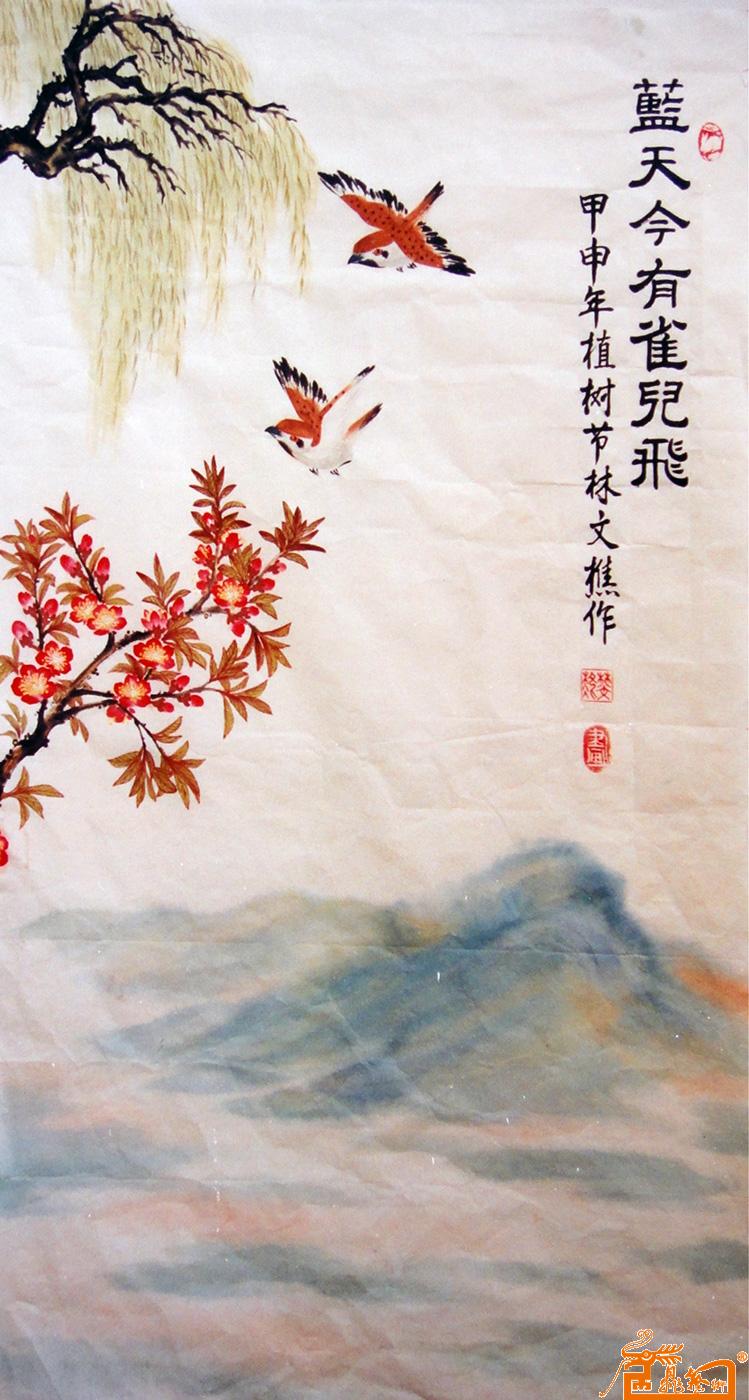 藍天今有雀兒飛
甲申年植树节林文樵作